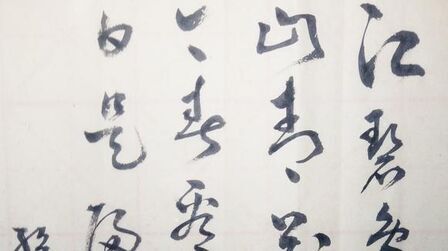 江碧鳥
山青花
今春看
日是歸